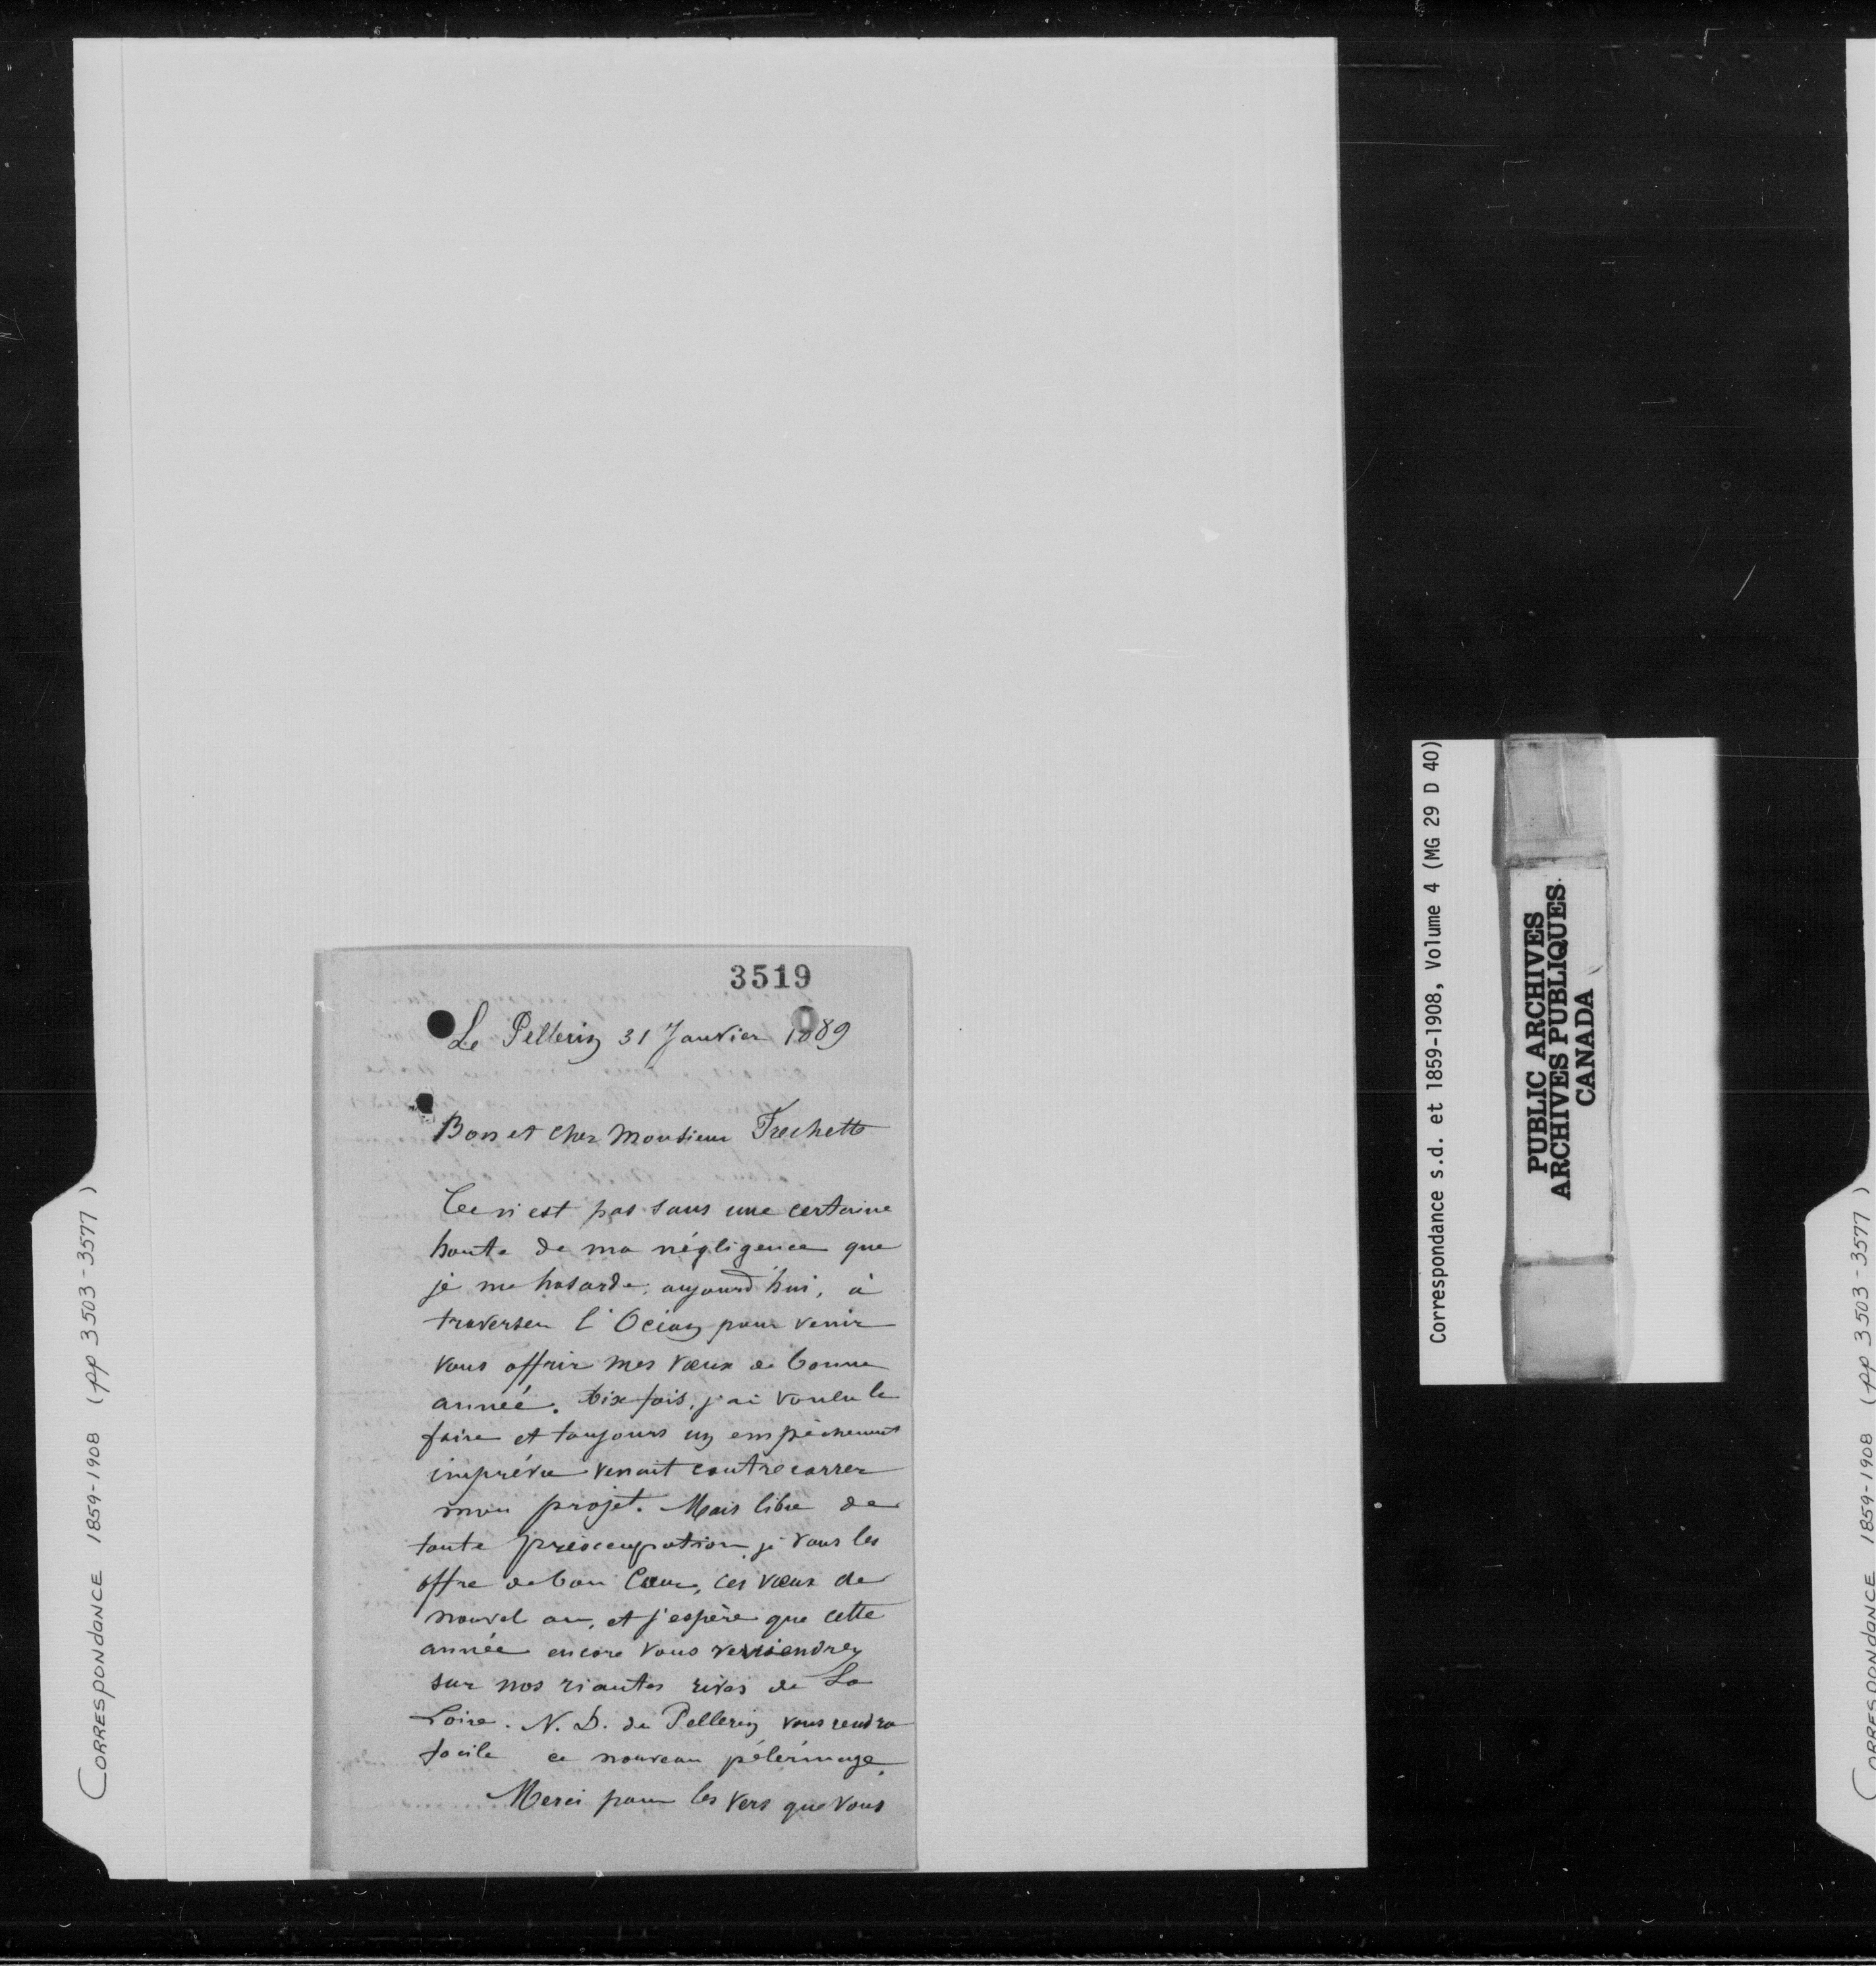 3519
Le Pellerin 31 Janvier 1889
Bon et cher Monsieur Frechette
Ce n'est pas sans une certaine
honte de ma négligence que
je me hasarde, aujourd'hui, à
traverser l'Océan pour venir
vous offrir mes vœux de bonne
année. Dix fois, j'ai voulu le
faire et toujours un empêchement
imprévu venait contrecarrer
mon projet. Mais libre de
toute préoccupation, je vous les
offre de bon Cœur, ces vœux de
nouvel an, et j'espère que cette
année encore vous reviendrez
sur nos riantes rives de La
Loire. N. D. du Pellerin vous rendra
facile ce nouveau pélerinage.
Merci pour les vers que vous
CORRESPONDANCE 1859-1908 (pp 3503-3577)
Correspondance s.d. et 1859-1908, Volume 4 (MG 29 D 40)
PUBLIC ARCHIVES
ARCHIVES PUBLIQUES
CANADA
CORRESPONDANCE 1859-1908 (pp 3503-3577)